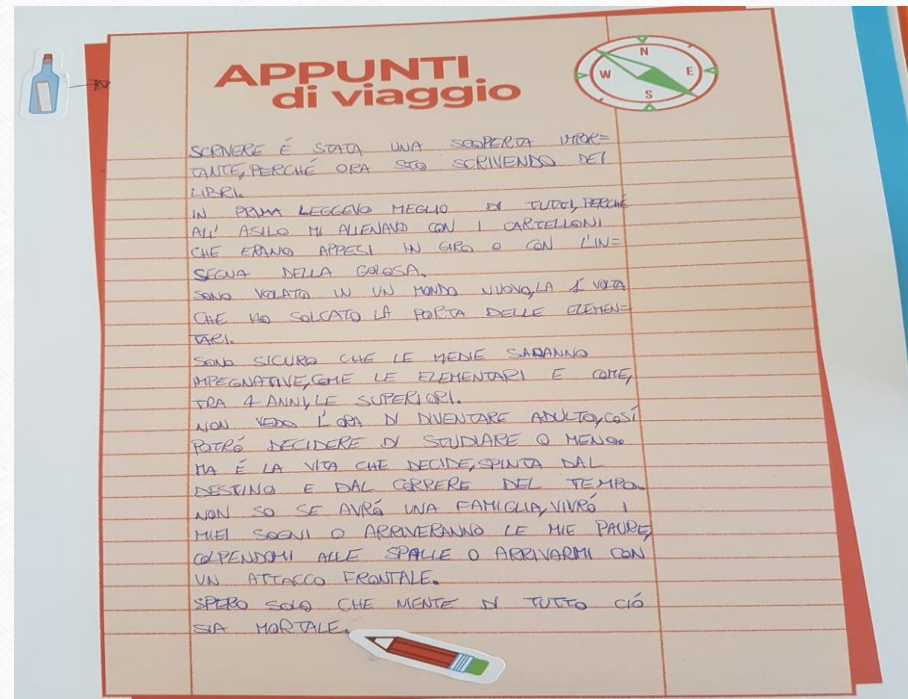 APPUNTI
di viaggio
N
W E
S
SCRIVERE É STATA UNA SCOPERTA IMPOR=
TANTE, PERCHÉ ORA STO SCRIVENDO DEI
LIBRI.
IN PRIMA LEGGEVO MEGLIO DI TUTTI, PERCHÉ
ALL' ASILO MI ALLENAVO CON I CARTELLONI
CHE ERANO APPESI IN GIRO O CON L'IN=
SEGNA DELLA GOLOSA.
SONO VOLATO IN UN MONDO NUOVO, LA 1ª VOLTA
CHE HO SOLCATO LA PORTA DELLE ELEMEN=
TARI.
SONO SICURO CHE LE MEDIE SARANNO
IMPEGNATIVE, COME LE ELEMENTARI E COME,
TRA 4 ANNI, LE SUPERIORI.
NON VEDO L'ORA DI DIVENTARE ADULTO, COSÍ
POTRÓ DECIDERE DI STUDIARE O MENO.
MA É LA VITA CHE DECIDE, SPINTA DAL
DESTINO E DAL CORRERE DEL TEMPO.
NON SO SE AVRÓ UNA FAMIGLIA, VIVRÓ I
MIEI SOGNI O ARRIVERANNO LE MIE PAURE,
COLPENDOMI ALLE SPALLE O ARRIVARMI CON
UN ATTACCO FRONTALE.
SPERO SOLO CHE NIENTE DI TUTTO CIÓ
SIA MORTALE.